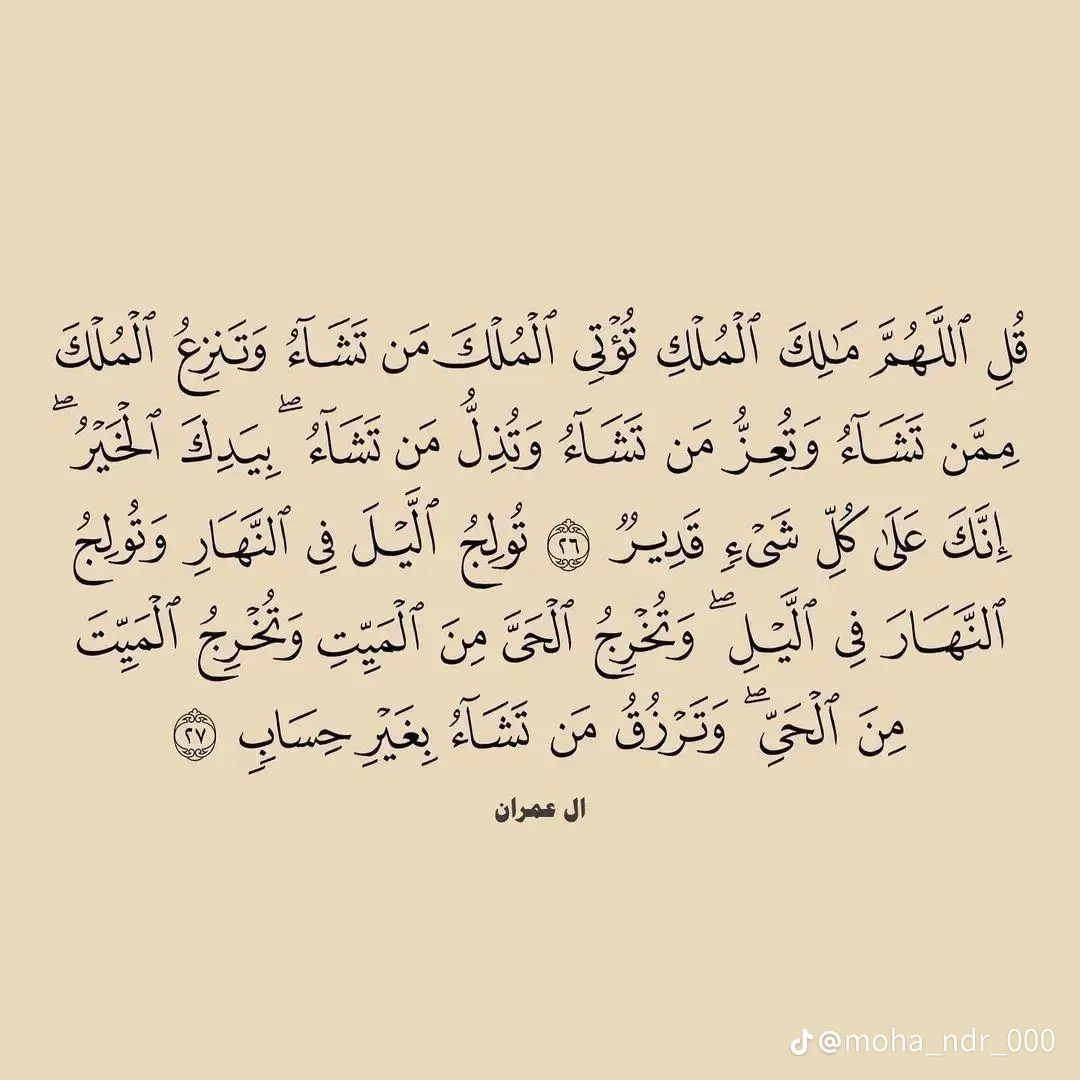 قُلِ ٱللَّهُمَّ مَٰلِكَ ٱلْمُلْكِ تُؤْتِى ٱلْمُلْكَ مَن تَشَآءُ وَتَنزِعُ ٱلْمُلْكَ
مِمَّن تَشَآءُ وَتُعِزُّ مَن تَشَآءُ وَتُذِلُّ مَن تَشَآءُ ۖ بِيَدِكَ ٱلْخَيْرُ ۖ
إِنَّكَ عَلَىٰ كُلِّ شَىْءٍ قَدِيرٌ ٢٦ تُولِجُ ٱلَّيْلَ فِى ٱلنَّهَارِ وَتُولِجُ
ٱلنَّهَارَ فِى ٱلَّيْلِ ۖ وَتُخْرِجُ ٱلْحَىَّ مِنَ ٱلْمَيِّتِ وَتُخْرِجُ ٱلْمَيِّتَ
مِنَ ٱلْحَىِّ ۖ وَتَرْزُقُ مَن تَشَآءُ بِغَيْرِ حِسَابٍ ٢٧
ال عمران
@moha_ndr_000